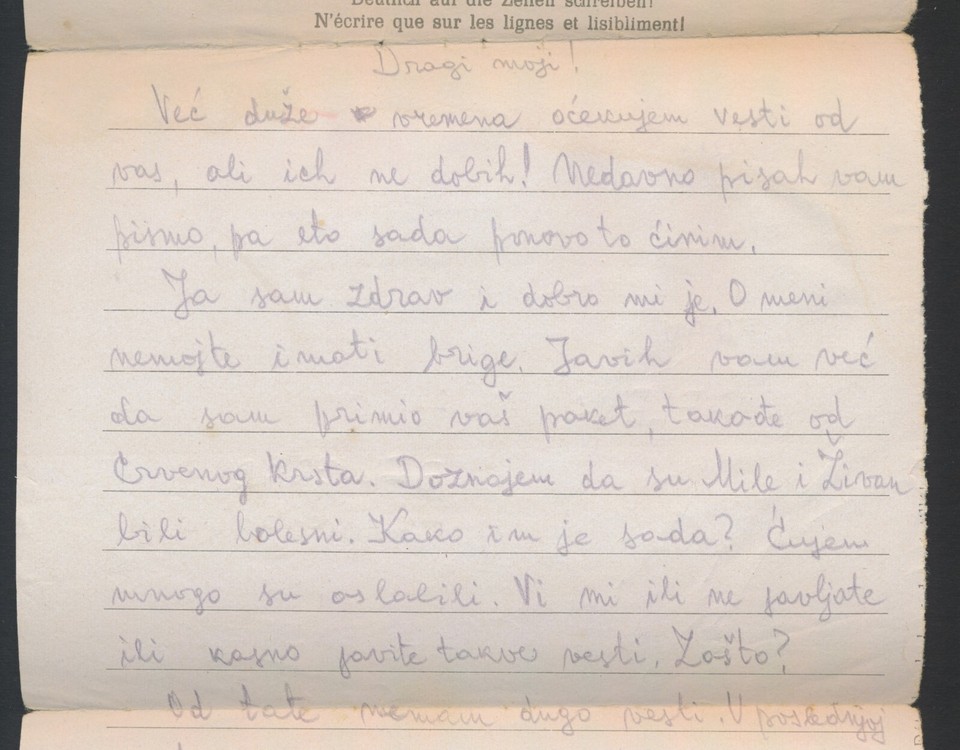 Deutsch auf die Zeilen schreiben!
N'écrire que sur les lignes et lisibliment!
Dragi moji!
Već duže vremena oćekujem vesti od
vas, ali ich ne dobih! Nedavno pisah vam
pismo, pa eto sada ponovo to ćinim.
Ja sam zdrav i dobro mi je. O meni
nemojte imati brige. Javih vam već
da sam primio vaš paket, takođe od
Crvenog Krsta. Doznajem da su Mile i Živan
bili bolesni. Kako im je sada? Ćujem
mnogo su oslabili. Vi mi ili ne javljate
ili kasno javite takve vesti. Zašto?
Od tate nemam dugo vesti. U poslednjoj